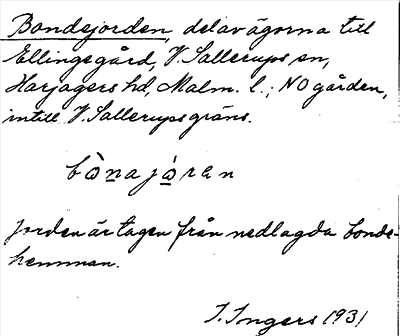 Bondejorden, del av ägorna till
Ellingegård, V. Sallerups sn,
Harjagers hd, Malm. l.; NO gården,
intill V. Sallerups gräns.
bònajòren
Jorden är tagen från nedlagda bonde-
hemman.
I. Ingers 1931